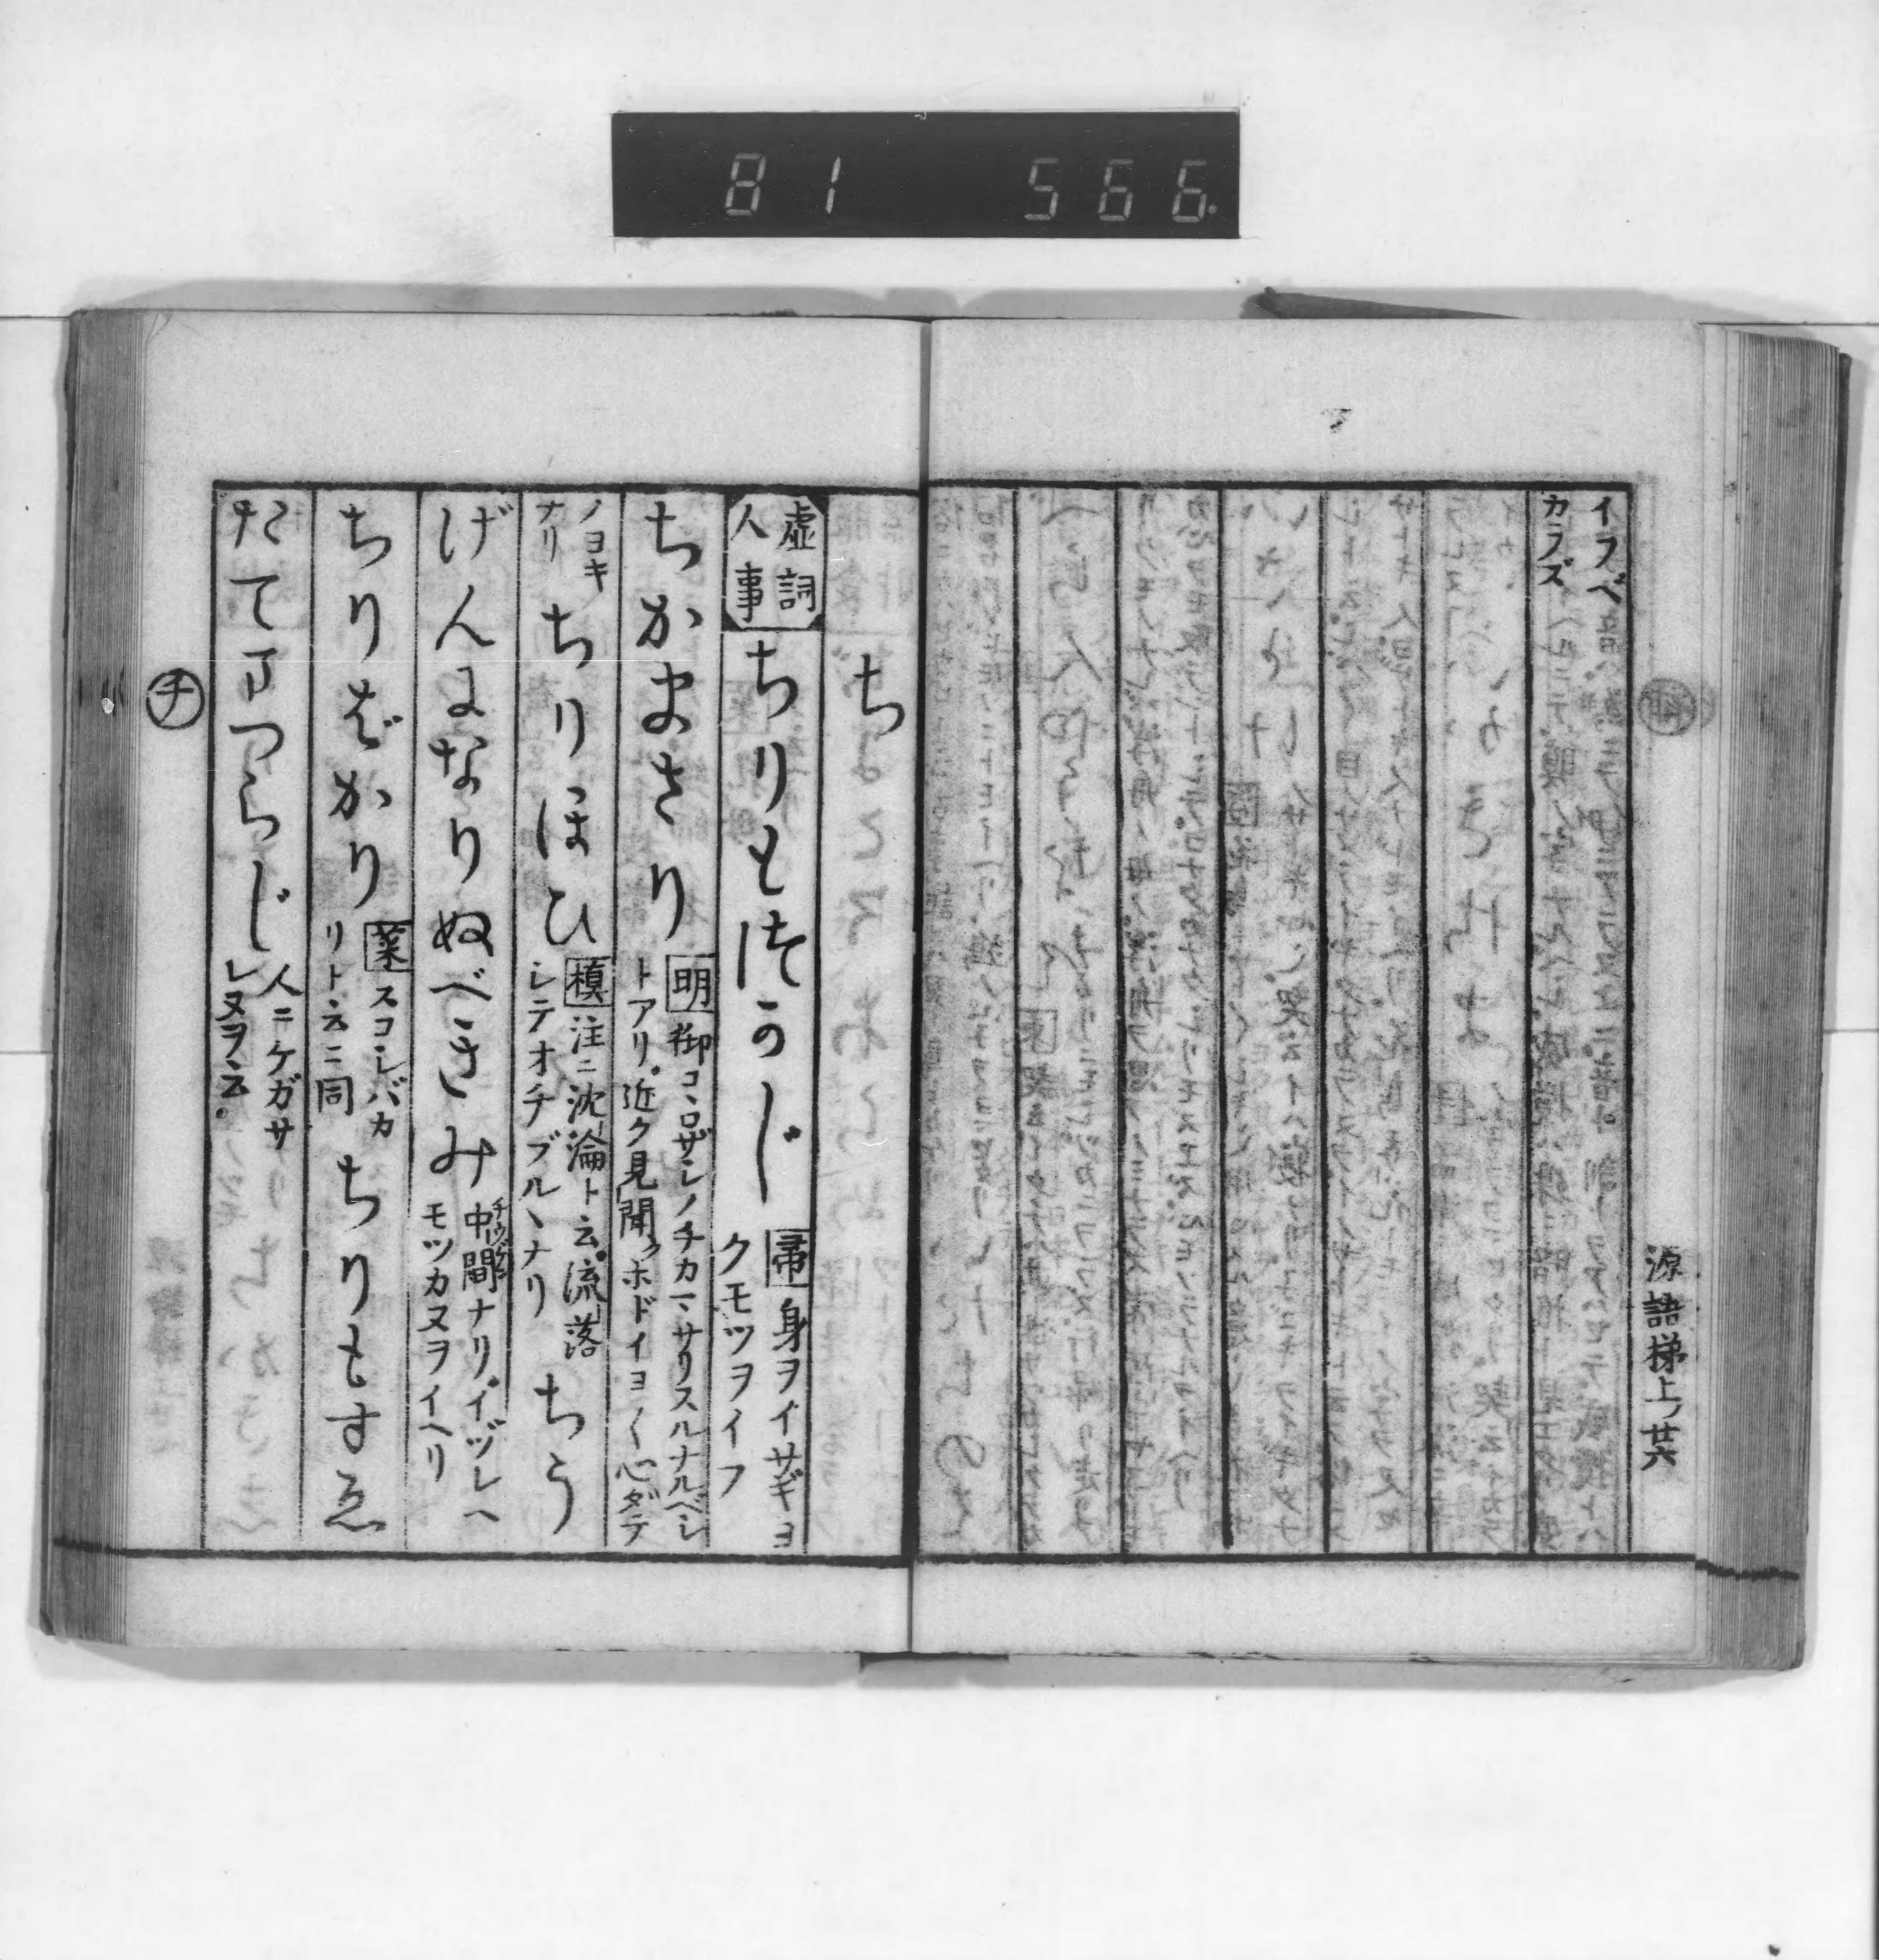 81 566.
源語梯上 廿六
イフベ
カラズ
ち
虚詞
人事
ちりもつかじ
帚 身ヲイサギヨ
クモツヲイフ
ちかまさり
明 御コヽロザシノチカマサリスルナルベシ
トアリ。近ク見聞クホドイヨ〱心ダテ
ノヨキ
ナリ
ちりほひ
槙 注ニ沈淪ト云。流落
シテオチブルヽナリ
ちう
げんになりぬべきみ
中間ナリ。イヅレヘ
チウゲン
モツカヌヲイヘリ
ちりばかり
葉 スコシバカ
リト云ニ同
ちりもすゑ
たてまつらじ
人ニケガサ
レヌヲ云。
チ